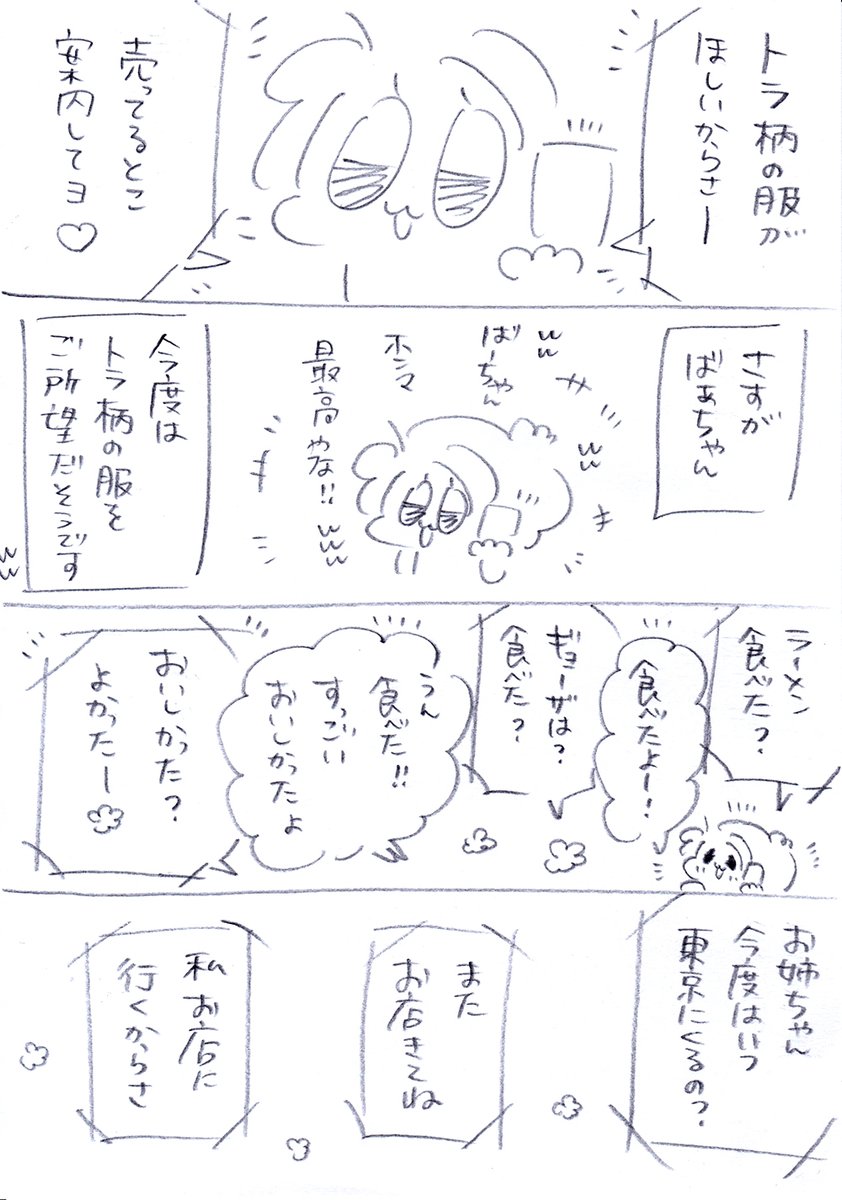 トラ柄の服が
ほしいからさー
売ってるとこ
案内してヨ♡
さすが
ばぁちゃん
ばーちゃん
ホンマ
最高やな!!
今度は
トラ柄の服を
ご所望だそうです
ラーメン
食べた?
食べたよー!
ギョーザは?
食べた?
うん
食べた!!
すっごい
おいしかったよ
おいしかった?
よかったー
お姉ちゃん
今度はいつ
東京にくるの?
また
お店きてね
私お店に
行くからさ